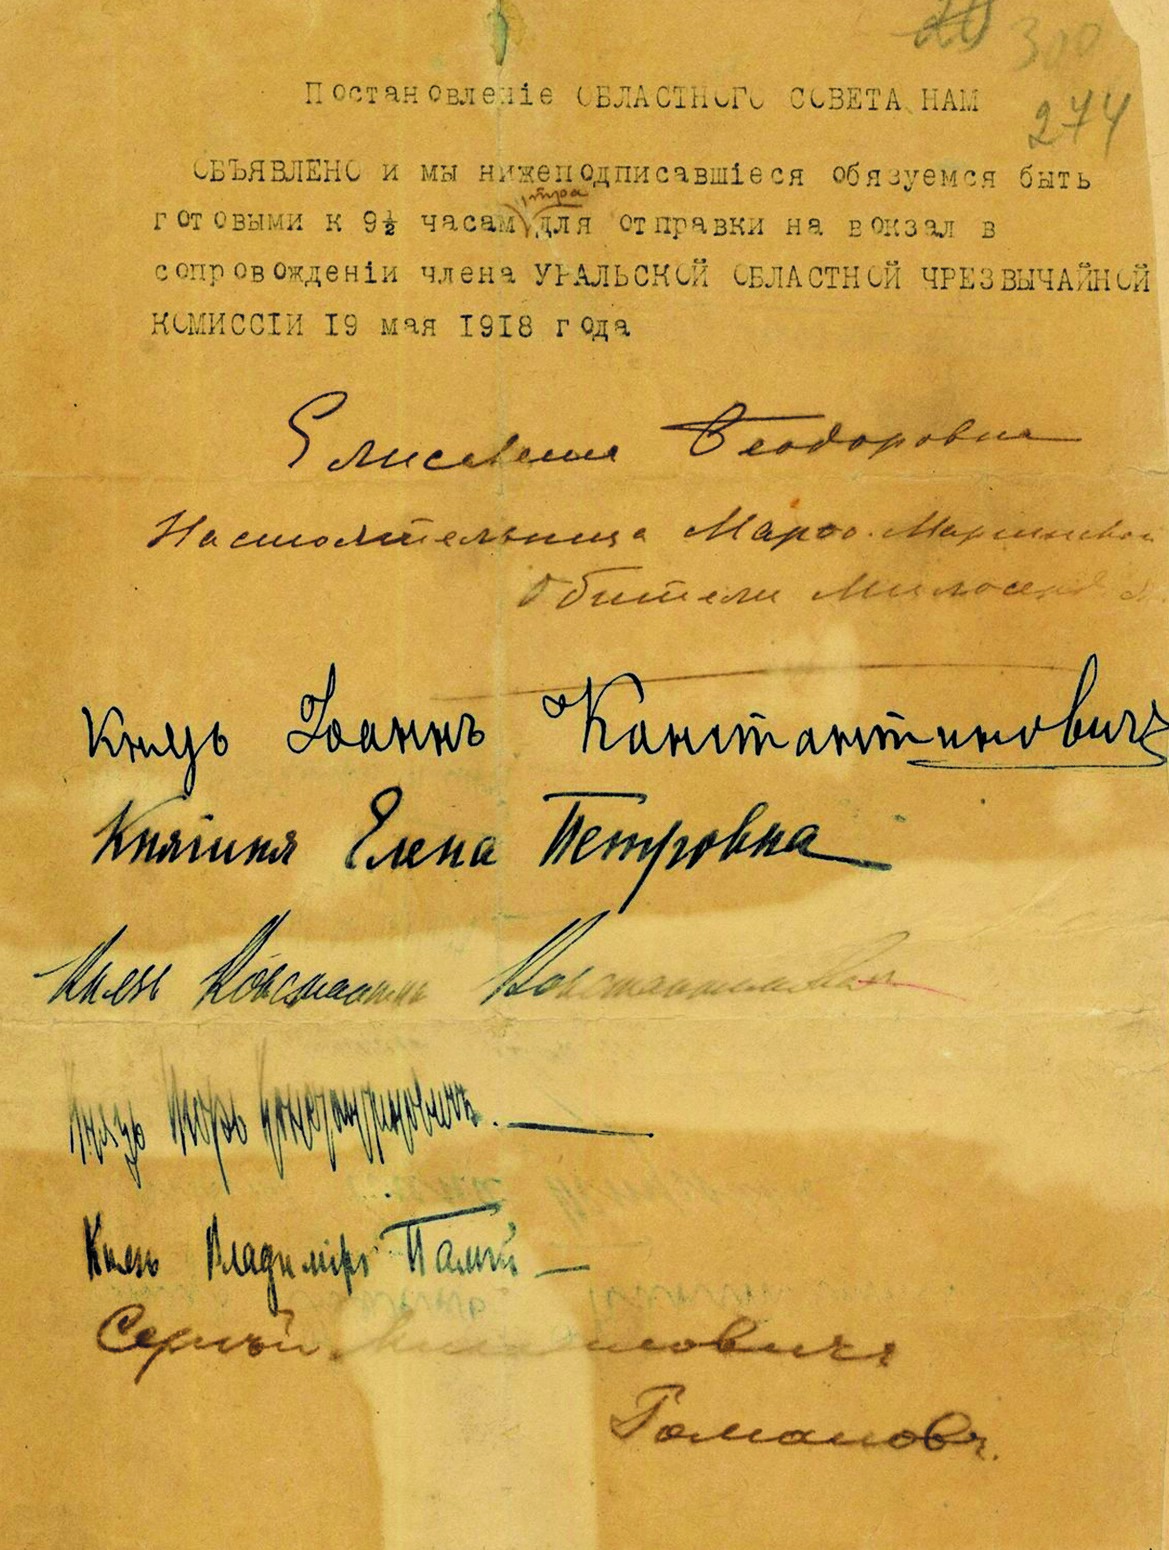 300
274
Постановленіе ОБЛАСТНОГО СОВЕТА НАМ
ОБЪЯВЛЕНО и мы нижеподписавшіеся обязуемся быть
утра
готовыми к 9½ часам для отправки на вокзал в
сопровожденіи члена УРАЛЬСКОЙ ОБЛАСТНОЙ ЧРЕЗВЫЧАЙНОЙ
КОМИССІИ 19 мая 1918 года
Елисавета Феодоровна
Настоятельница Марфо-Мариинской
Обители Милосердія
Князь Іоаннъ Константиновичъ
Княгиня Елена Петровна
Князь Константинъ Константиновичъ
Князь Игорь Константиновичъ.
Князь Владиміръ Палѣй
Сергѣй Михайловичъ
Романовъ.